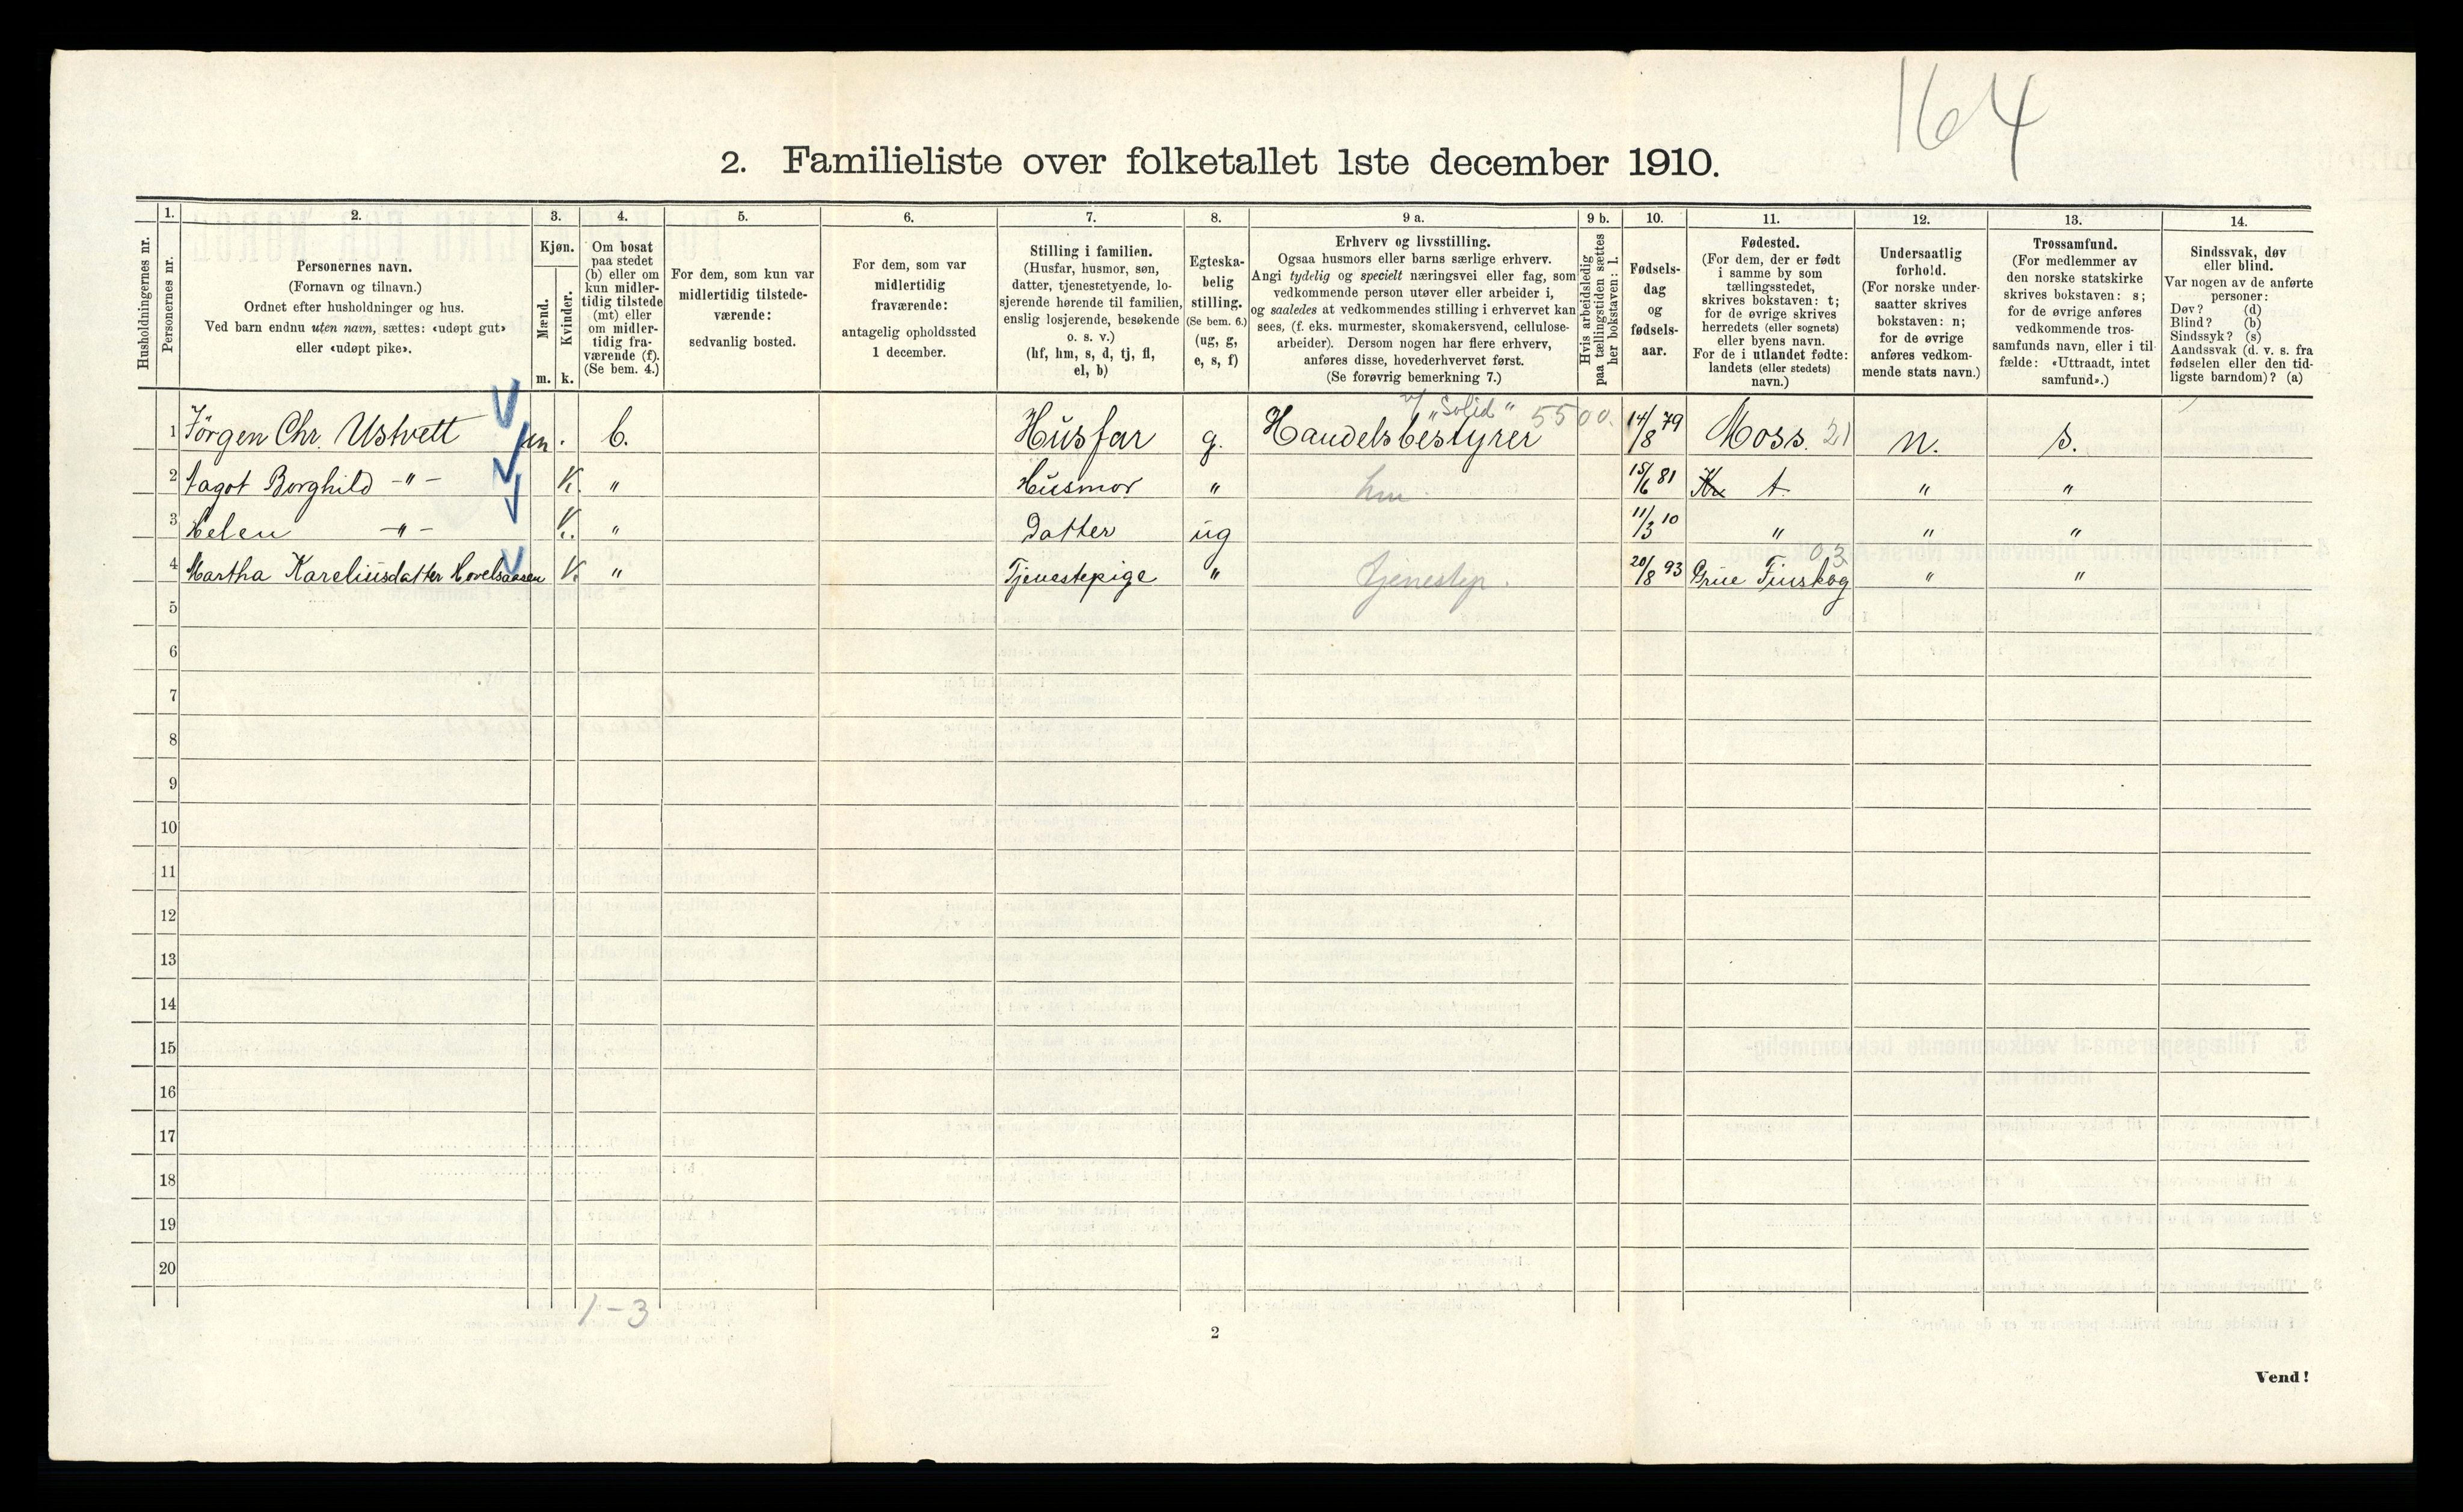 164
2. Familieliste over folketallet 1ste december 1910.
Husholdningernes nr.
1.
Personernes nr.
2.
Personernes navn.
(Fornavn og tilnavn.)
Ordnet efter husholdninger og hus.
Ved barn endnu uten navn, sættes: «udøpt gut»
eller «udøpt pike».
3.
Kjøn.
Mænd.
Kvinder.
m. k.
4.
Om bosat
paa stedet
(b) eller om
kun midler-
tidig tilstede
(mt) eller
om midler-
tidig fra-
værende (f).
(Se bem. 4.)
5.
For dem, som kun var
midlertidig tilstede-
værende:
sedvanlig bosted.
6.
For dem, som var
midlertidig
fraværende:
antagelig opholdssted
1 december.
7.
Stilling i familien.
(Husfar, husmor, søn,
datter, tjenestetyende, lo-
sjerende hørende til familien,
enslig losjerende, besøkende
o. s. v.)
(hf, hm, s, d, tj, fl,
el, b)
8.
Egteska-
belig
stilling.
(Se bem. 6.)
(ug, g,
e, s, f)
9 a.
Erhverv og livsstilling.
Ogsaa husmors eller barns særlige erhverv.
Angi tydelig og specielt næringsvei eller fag, som
vedkommende person utøver eller arbeider i,
og saaledes at vedkommendes stilling i erhvervet kan
sees, (f. eks. murmester, skomakersvend, cellulose-
arbeider). Dersom nogen har flere erhverv,
anføres disse, hovederhvervet først.
(Se forøvrig bemerkning 7.)
9 b.
Hvis arbeidsledig
paa tællingstiden sættes
her bokstaven: l.
10.
Fødsels-
dag
og
fødsels-
aar.
11.
Fødested.
(For dem, der er født
i samme by som
tællingsstedet,
skrives bokstaven: t;
for de øvrige skrives
herredets (eller sognets)
eller byens navn.
For de i utlandet fødte:
landets (eller stedets)
navn.)
12.
Undersaatlig
forhold.
(For norske under-
saatter skrives
bokstaven: n;
for de øvrige
anføres vedkom-
mende stats navn.)
13.
Trossamfund.
(For medlemmer av
den norske statskirke
skrives bokstaven: s;
for de øvrige anføres
vedkommende tros-
samfunds navn, eller i til-
fælde: «Uttraadt, intet
samfund».)
14.
Sindssvak, døv
eller blind.
Var nogen av de anførte
personer:
Døv? (d)
Blind? (b)
Sindssyk? (s)
Aandssvak (d. v. s. fra
fødselen eller den tid-
ligste barndom)? (a)
v/ "Solid" 5500.
1 Jörgen Chr. Ustvett m. b. Husfar g. Handelsbestyrer 14/8 79 Moss. 21 n. s.
2 Aagot Borghild -"- K. " Husmor " hm 15/6 81 t. " "
3 Helen -"- K. " Datter ug 11/3 10 " " "
4 Martha Kareliusdatter Hovelsaasen K. " Tjenestepige " tjenestep. 20/8 93 Grue Finskog 03 " "
5
6
7
8
9
10
11
12
13
14
15
16
17
18
19
20
1-3
2
Vend!